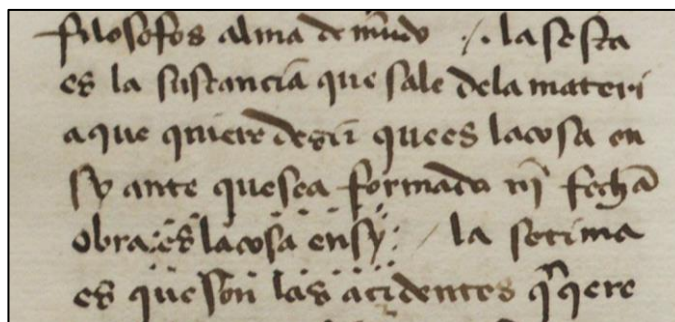 filosofos alma de mũdo /. la sesta
es la sustançia que sale dela materi
a que quiere dezir que es la cosa en
sy ante que sea formada nĩ fecha
obra: es la cosa en sy: / la setima
es que son las açidentes q̃ q̃ere